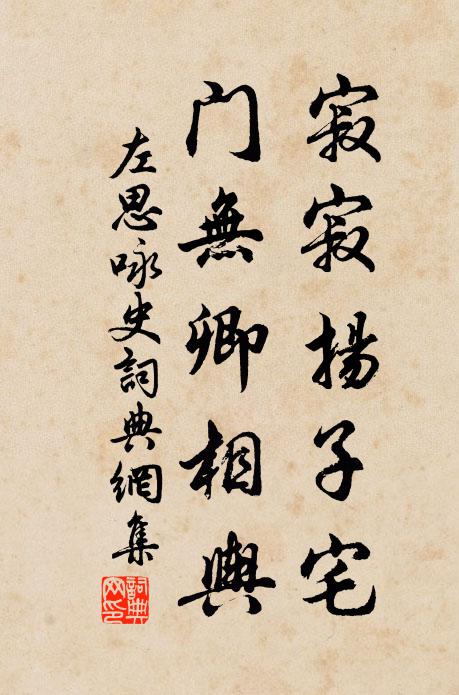 寂寂揚子宅
門無卿相輿
左思咏史詞典網集
詞典網印